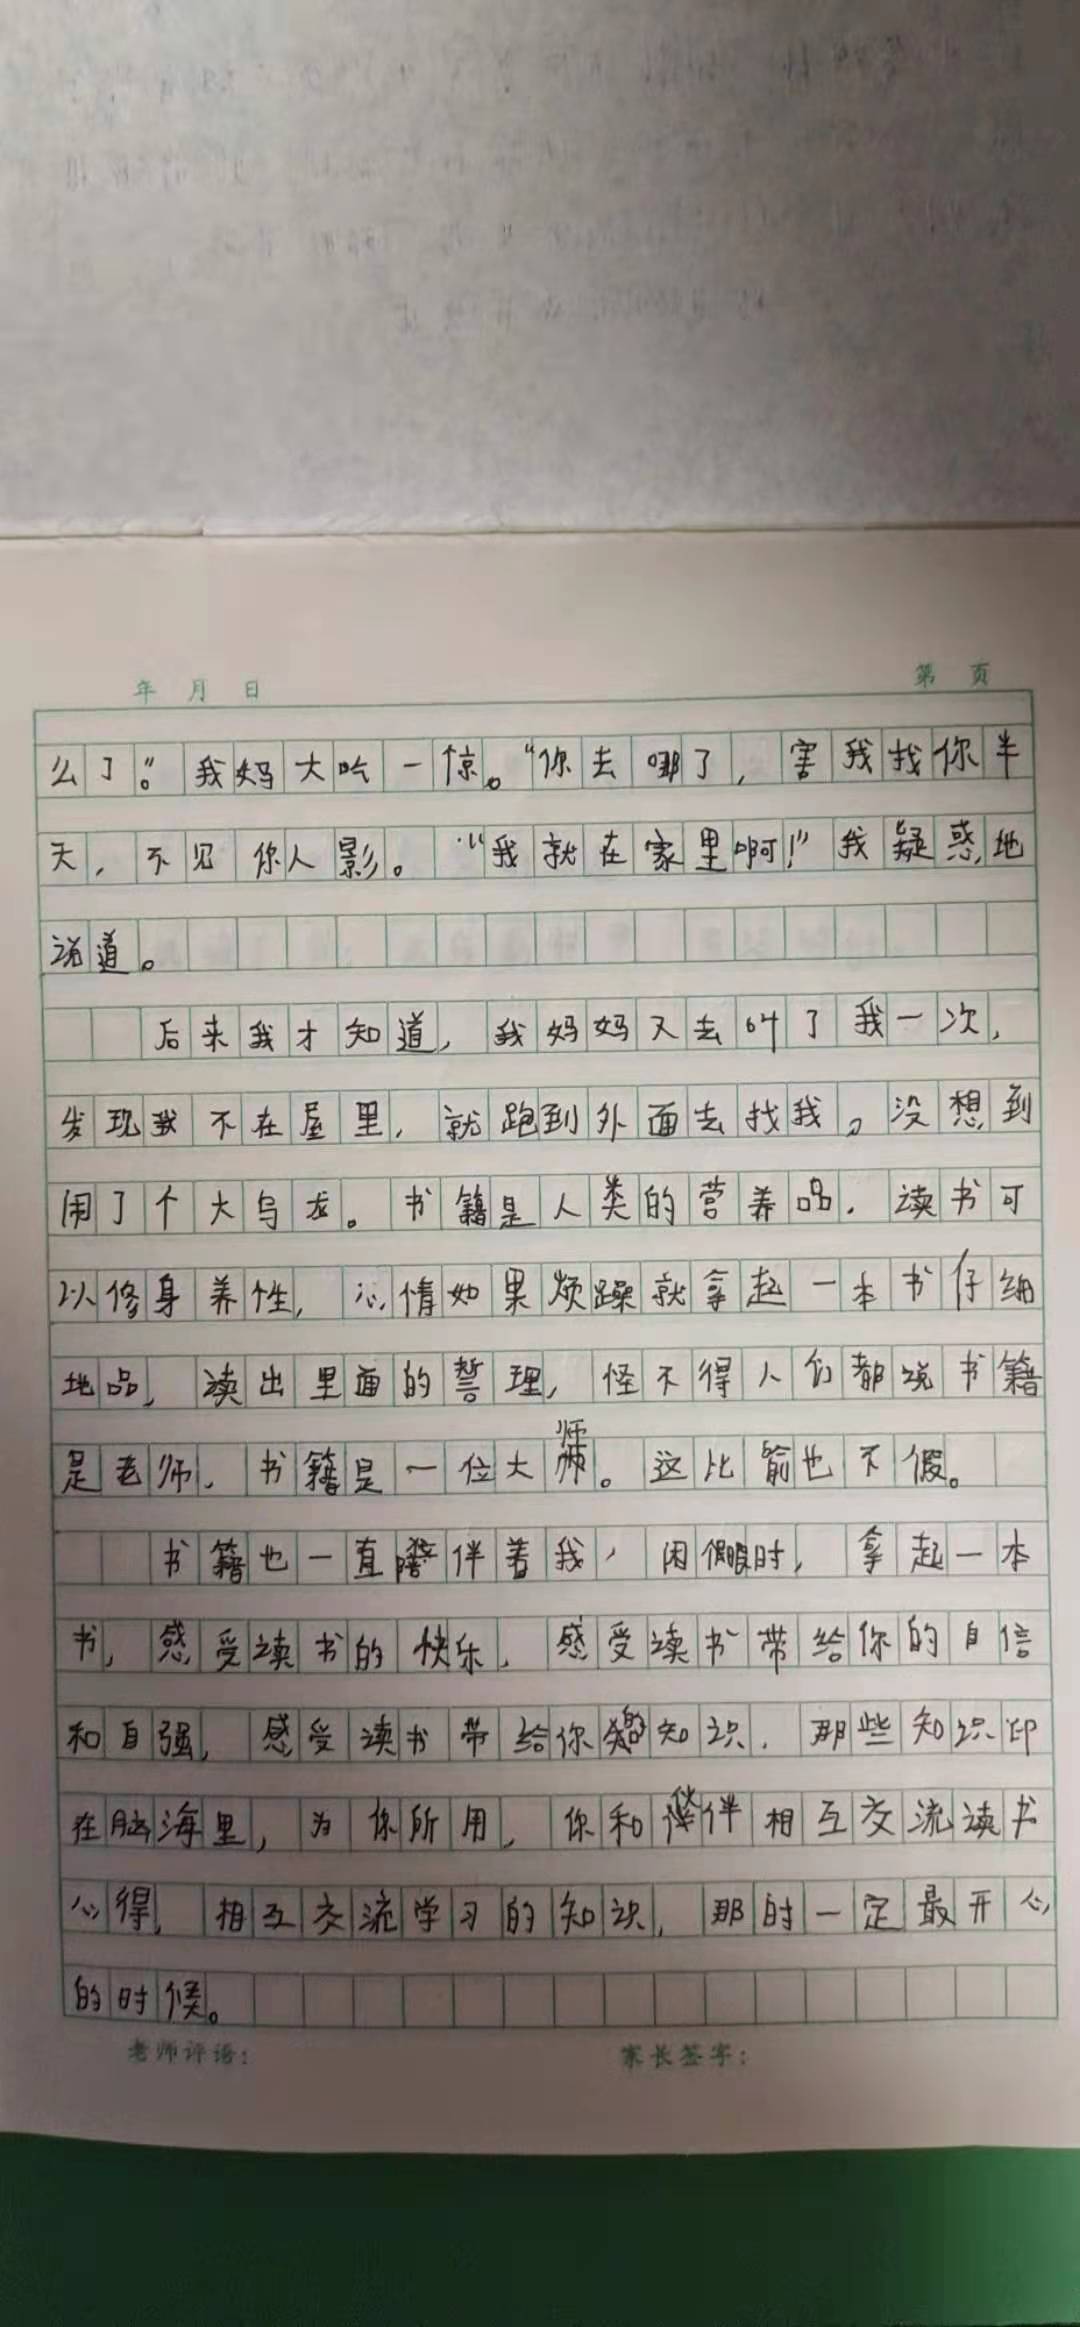 年 月 日
第 页
么了。”我妈大吃一惊。“你去哪了，害我找你半
天，不见你人影。“我就在家里啊！”我疑惑地
说道。
后来我才知道，我妈妈又去叫了我一次，
发现我不在屋里，就跑到外面去找我。没想到
闹了个大乌龙。书籍是人类的营养品，读书可
以修身养性，心情如果烦躁就拿起一本书仔细
地品，读出里面的哲理，怪不得人们都说书籍
是老师，书籍是一位大师。这比喻也不假。
书籍也一直陪伴着我，闲暇时，拿起一本
书，感受读书的快乐，感受读书带给你的自信
和自强，感受读书带给你知识，那些知识印
在脑海里，为你所用，你和伙伴相互交流读书
心得，相互交流学习的知识，那时一定最开心
的时候。
老师评语：
家长签字：